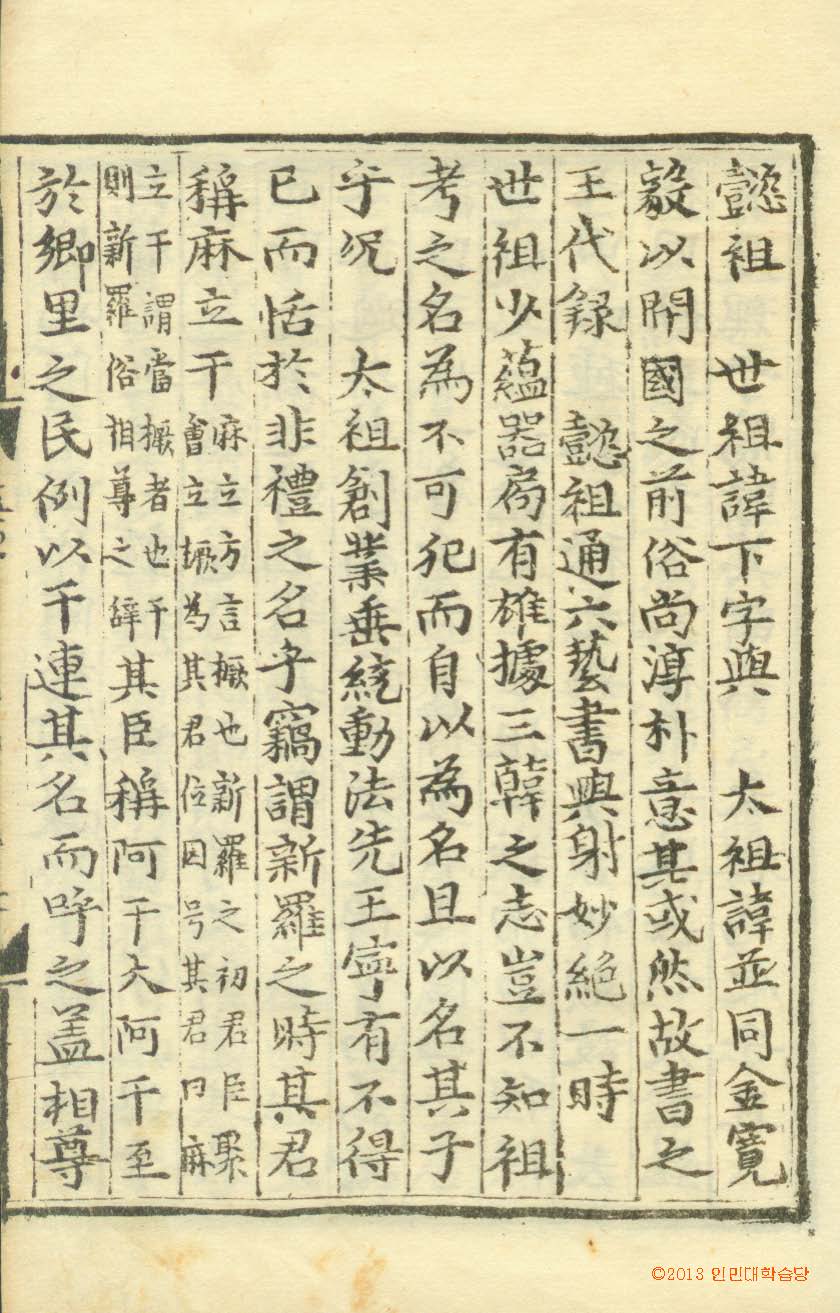 懿祖　世祖諱下字與　太祖諱並同金寬
毅以開國之前俗尚淳朴意其或然故書之
王代録　懿祖通六藝書與射妙絶一時
世祖少蘊器局有雄據三韓之志豈不知祖
考之名為不可犯而自以為名且以名其子
乎况　太祖創業垂統動法先王寧有不得
已而恬於非禮之名乎竊謂新羅之時其君
稱麻立干麻立方言橛也新羅之初君臣聚
會立橛為其君位因号其君曰麻
立干謂當橛者也干
則新羅俗相尊之辞其臣稱阿干大阿干至
於鄉里之民例以干連其名而呼之盖相尊
©2013 인민대학습당